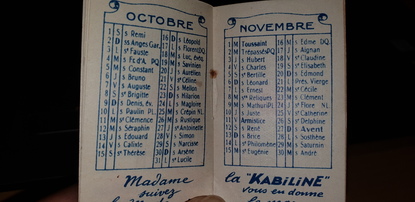 OCTOBRE
1 S s Remi
2 D ss Anges Gar.
3 L s Fauste
4 M s Fr. d'A. PQ
5 M s Constant
6 J s Bruno
7 V s Auguste
8 S se Brigitte
9 D s Denis, év.
10 L s Paulin PL
11 M s Clémence
12 M s Séraphin
13 J s Edouard
14 V s Calixte
15 S se Thérèse
16 D s Léopold
17 L s Florent DQ
18 M s Luc, évêq
19 M s Savinien
20 J s Aurélien
21 V se Céline
22 S s Melon
23 D s Hilarion
24 L s Magloire
25 M s Crépin NL
26 M s Rustique
27 J s Antoinette
28 V s Simon
29 S s Narcisse
30 D s Arsène
31 L se Lucile
NOVEMBRE
1 M Toussaint
2 M Trépassés DQ
3 J s Hubert
4 V s Charles
5 S se Bertille
6 D s Léonard
7 L s Ernest
8 M stes Reliques
9 M s Mathurin
10 J s Juste
11 V Armistice
12 S s René
13 D s Brice
14 L s Philomène
15 M s Eugénie
16 M s Edme DQ
17 J s Aignan
18 V s Claudine
19 S se Elisabeth
20 D s Edmond
21 L Prés. Vierge
22 M se Cécile
23 M s Clément
24 J se Flore NL
25 V s Catherine
26 S se Delphine
27 D Avent
28 L s Sosthène
29 M s Saturnin
30 M s André
Madame
suivez
la "KABILINE"
vous en donne